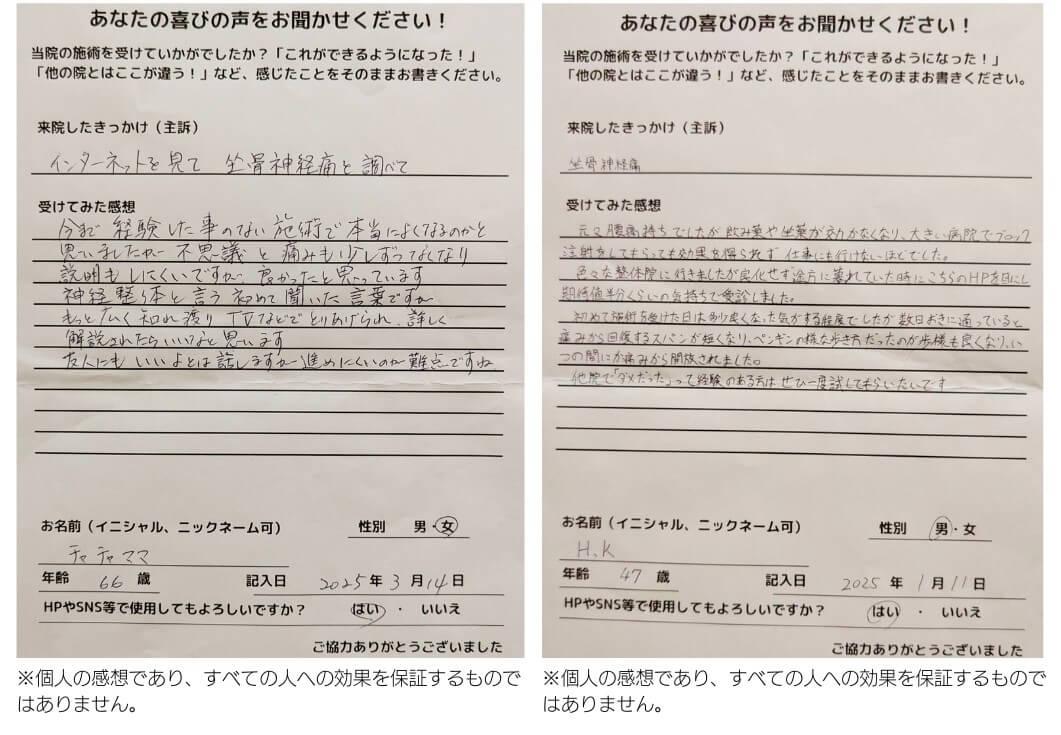 あなたの喜びの声をお聞かせください！
当院の施術を受けていかがでしたか？「これができるようになった！」
「他の院とはここが違う！」など、感じたことをそのままお書きください。
来院したきっかけ（主訴）
インターネットを見て 坐骨神経痛と調べて
受けてみた感想
今まで経験した事のない施術で本当によくなるのかと
思いましたが 不思議と痛みも少しずつなくなり
説明もしにくいですが 良かったと思っています
神経整体と言う初めて聞いた言葉ですが
もっと広く知れ渡り TVなどでとりあげられ、詳しく
解説されたらいいなと思います
友人にもいいよとは話しますが 進めにくいのが難点ですね
お名前（イニシャル、ニックネーム可） 性別 男・女
チャチャママ
年齢 66 歳 記入日 2025年 3月 14日
HPやSNS等で使用してもよろしいですか？ はい ・ いいえ
ご協力ありがとうございました
※個人の感想であり、すべての人への効果を保証するもので
はありません。
あなたの喜びの声をお聞かせください！
当院の施術を受けていかがでしたか？「これができるようになった！」
「他の院とはここが違う！」など、感じたことをそのままお書きください。
来院したきっかけ（主訴）
坐骨神経痛
受けてみた感想
元々腰痛持ちでしたが飲み薬や坐薬が効かなくなり、大きい病院でブロック
注射をしてもらっても効果を得られず 仕事にも行けないほどでした。
色々な整体院に行きましたが良化せず途方に暮れていた時にこちらのHPを目にし
期待値半分くらいの気持ちで受診しました。
初めて施術を受けた日は多少良くなった気がする程度でしたが数日おきに通っていると
痛みから回復するスパンが短くなり、ペンギンの様な歩き方だったのが歩様も良くなり、い
つの間にか痛みから開放されました。
他院で「ダメだった」って経験のある方はぜひ一度試してもらいたいです
お名前（イニシャル、ニックネーム可） 性別 男・女
H.K
年齢 47 歳 記入日 2025 年 1月 11日
HPやSNS等で使用してもよろしいですか？ はい ・ いいえ
ご協力ありがとうございました
※個人の感想であり、すべての人への効果を保証するもので
はありません。